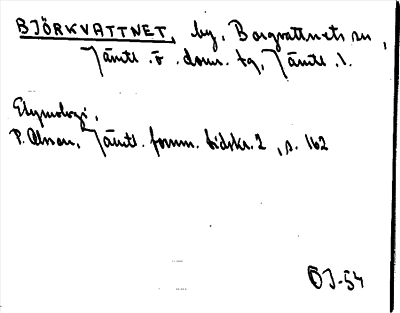 BJÖRKVATTNET, by, Borgvattnets sn,
Jämtl. ö. doms. tg, Jämtl. l.
Etymologi.
P. Olsson, Jämtl. fornm. tidskr. 2, s. 162
ÖJ-54